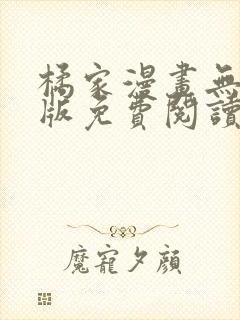 橘家漫畫無
版免費閱讀
魔寵夕顏